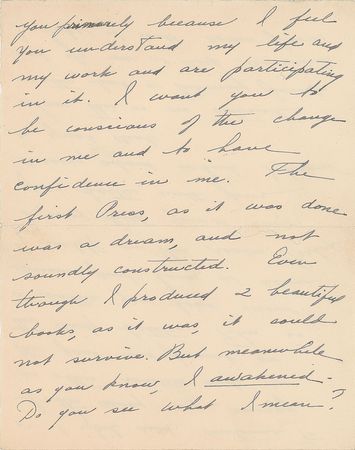 you primarely because I feel
you understand my life and
my work and are participating
in it. I want you to
be conscious of the change
in me and to have
confidence in me. The
first Press, as it was done
was a dream, and not
soundly constructed. Even
through I produced 2 beautiful
books, as it was, it could
not survive. But meanwhile
as you know, I awakened.
Do you see what I mean?